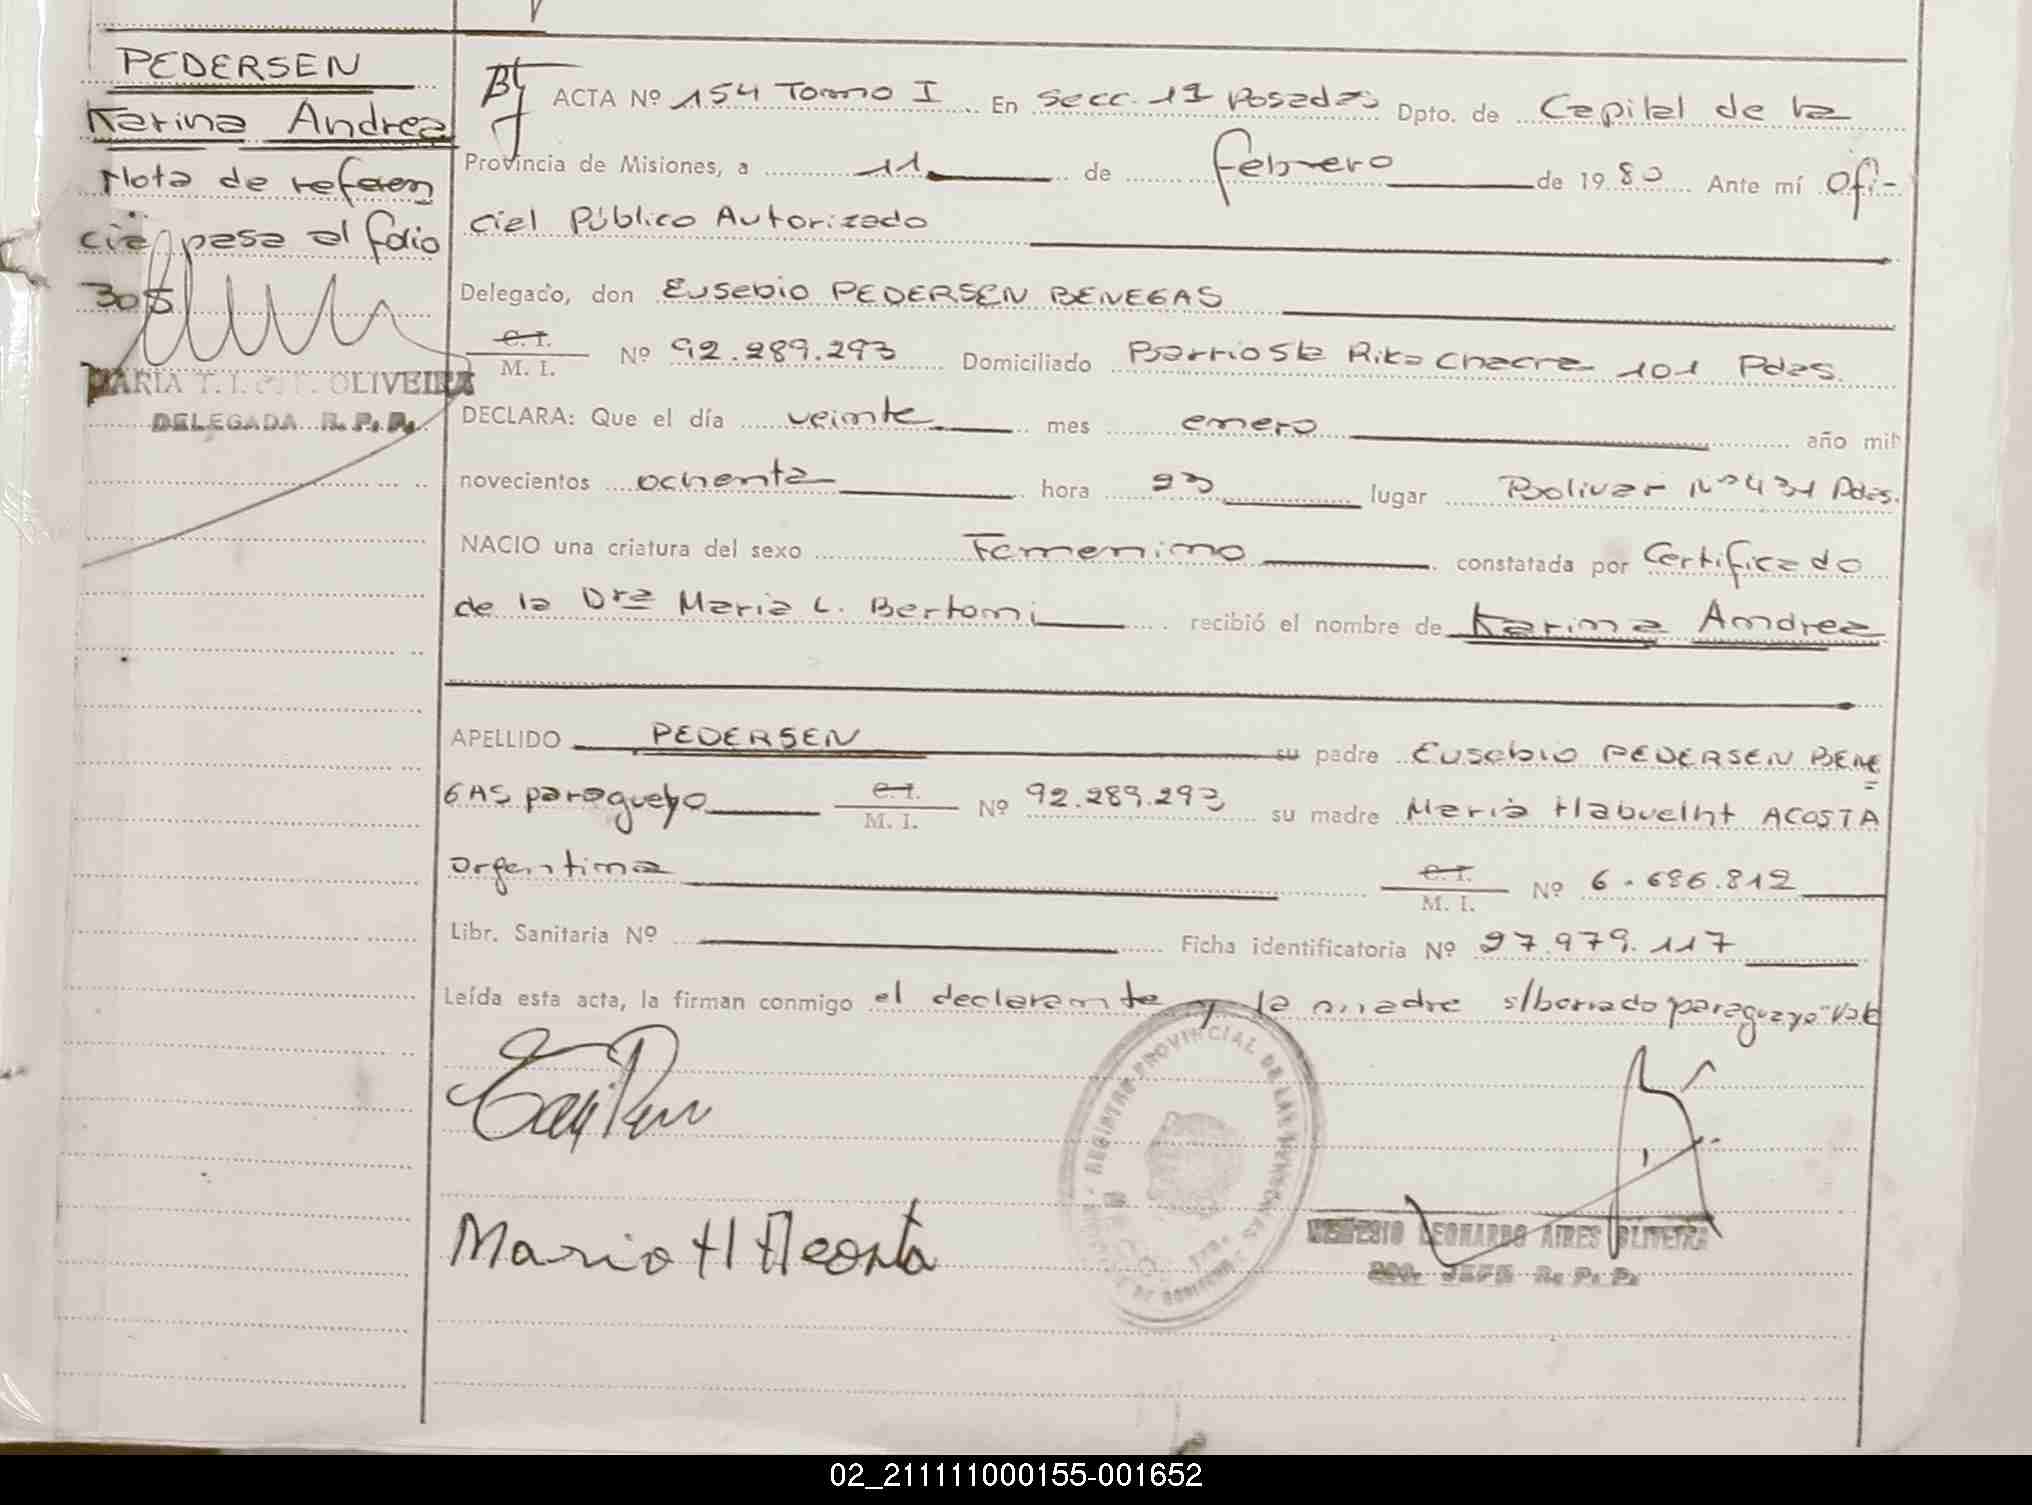 PEDERSEN
Karina Andrea
Nota de referen
cia pasa al folio
305
MARIA T. I. OLIVEIRA
DELEGADA R. P. P.
ACTA Nº 154 Tomo I En secc. 1ª Posadas Dpto. de Capital de la
Provincia de Misiones, a 11 de febrero de 1980 Ante mí Ofi-
cial Público Autorizado
Delegado, don Eusebio PEDERSEN BENEGAS
C.I. / M. I. Nº 92.289.293 Domiciliado Barrio Sta Rita Chacra 101 Pdas.
DECLARA: Que el día veinte mes enero año mil
novecientos ochenta hora 23 lugar Bolivar Nº 431 Pdas.
NACIO una criatura del sexo Femenino constatada por Certificado
de la Dra Maria L. Bertoni recibió el nombre de Karina Andrea
APELLIDO PEDERSEN su padre Eusebio PEDERSEN BENE
GAS paraguayo C.I. / M. I. Nº 92.289.293 su madre Maria Habuelht ACOSTA
argentina C.I. / M. I. Nº 6.686.812
Libr. Sanitaria Nº Ficha identificatoria Nº 27.979.117
Leída esta acta, la firman conmigo el declarante y la madre s/borrado paraguayo-Vale
REGISTRO PROVINCIAL DE LAS PERSONAS
Maria H Acosta
NEMESIO LEONARDO AIRES OLIVEIRA
JEFE R. P. P.
02_211111000155-001652